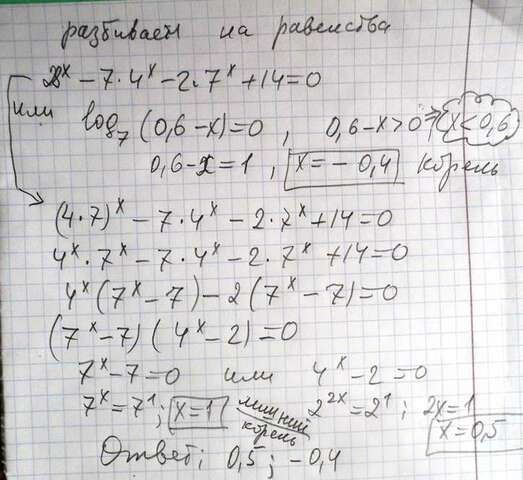 разбиваем на равенства
28^x − 7·4^x − 2·7^x + 14 = 0
или log_7 (0,6 − x) = 0 , 0,6 − x > 0 ⇒ x < 0,6
0,6 − x = 1 , x = − 0,4 корень
(4·7)^x − 7·4^x − 2·7^x + 14 = 0
4^x·7^x − 7·4^x − 2·7^x + 14 = 0
4^x (7^x − 7) − 2 (7^x − 7) = 0
(7^x − 7) (4^x − 2) = 0
7^x − 7 = 0 или 4^x − 2 = 0
7^x = 7^1 ; x = 1 лишний корень 2^{2x} = 2^1 ; 2x = 1
x = 0,5
Ответ: 0,5 ; −0,4